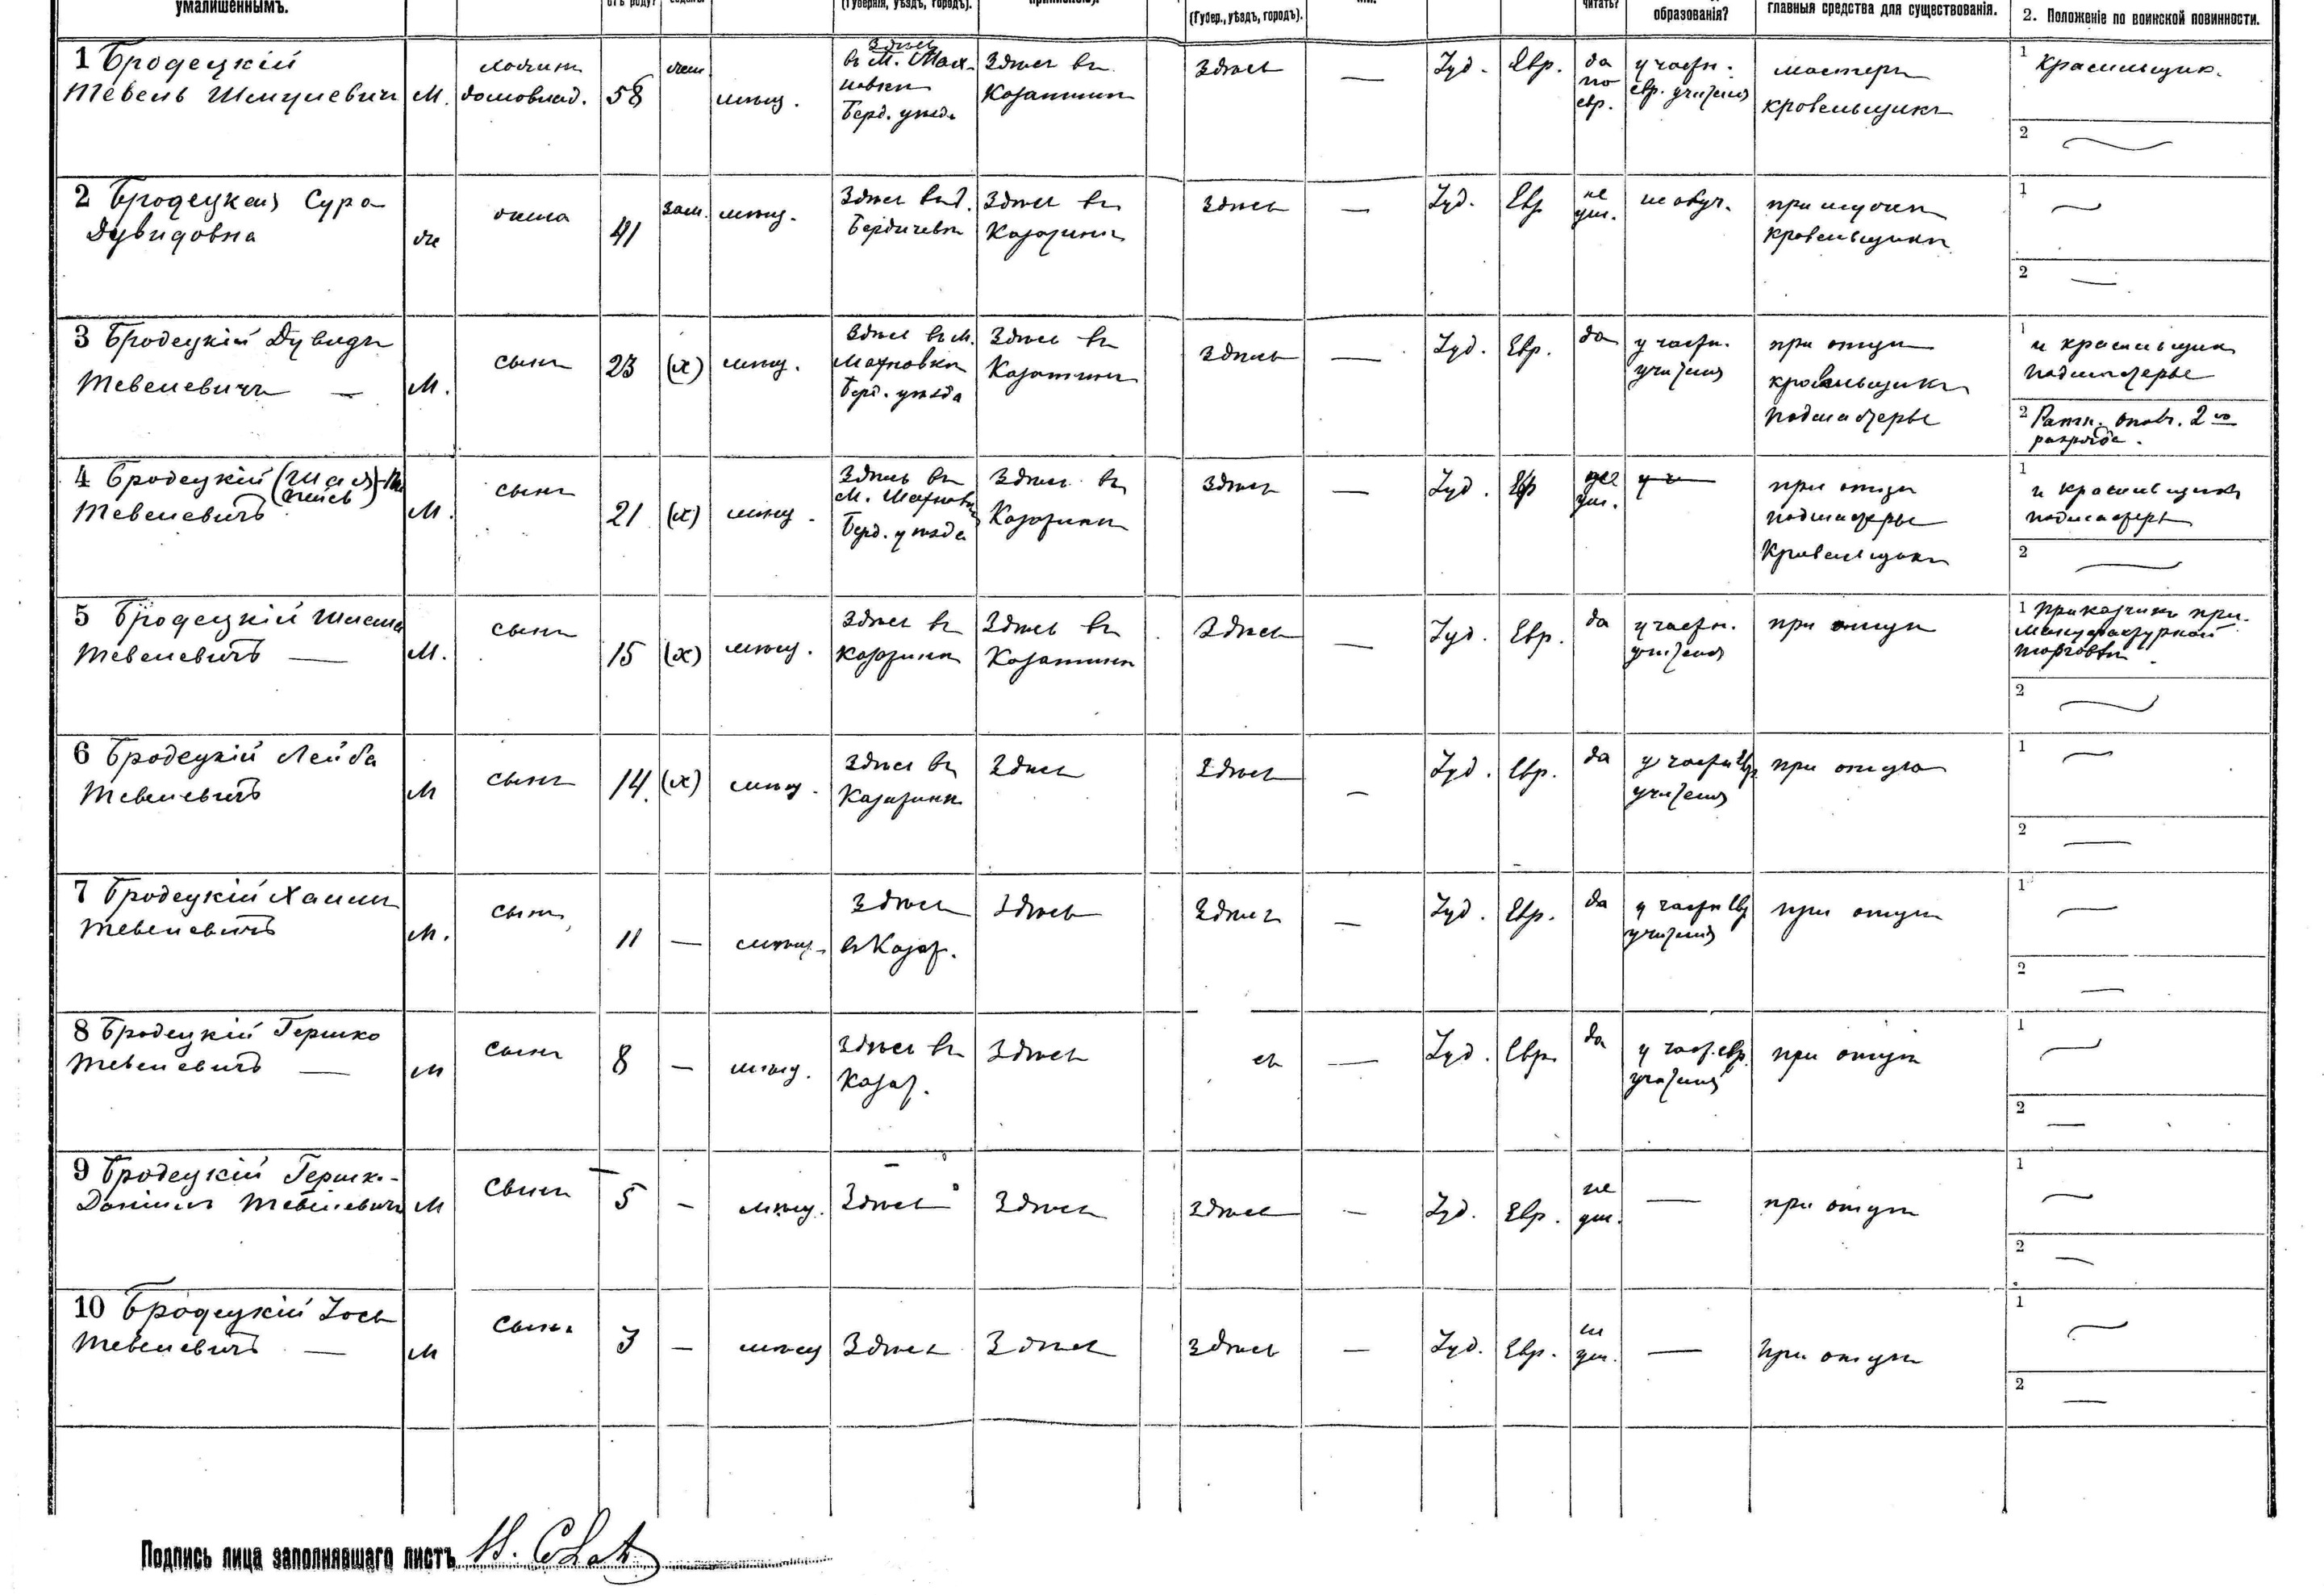 умалишеннымъ.
отъ роду?
(Губернія, уѣздъ, городъ).
(Губер., уѣздъ, городъ).
читать?
образованія?
главныя средства для существованія.
2. Положеніе по воинской повинности.
1 Бродецкій
Тевель Шмулевичъ
М.
домовлад.
58
жен.
мѣщ.
Здѣсь
въ М. Мах-
новкѣ
Берд. уѣзда
Здѣсь въ
Казатинѣ
Здѣсь
—
Іуд.
Евр.
да
по
евр.
у частн.
евр. учителя
мастеръ
кровельщикъ
1
Красильщик.
2
2 Бродецкая Сура
Дувидовна
же
жена
41
зам.
мѣщ.
Здѣсь въ г.
Бердичевѣ
Здѣсь въ
Казатинѣ
Здѣсь
—
Іуд.
Евр
не
ум.
не обуч.
при мужѣ
кровельщикѣ
1
2 —
3 Бродецкій Дувидъ
Тевелевичъ —
М.
сынъ
23
(х)
мѣщ.
Здѣсь въ М.
Махновкѣ
Берд. уѣзда
Здѣсь въ
Казатинѣ
Здѣсь
—
Іуд.
Евр.
да
у частн.
учителя
при отцѣ
кровельщикъ
подмастерье
1
и красильщик
подмастерье
2 Ратн. опол. 2го
разряда.
4 Бродецкій (Шая)
Тевелевичъ
М.
сынъ
21
(х)
мѣщ.
Здѣсь въ
М. Махновкѣ
Берд. уѣзда
Здѣсь въ
Казатинѣ
Здѣсь
—
Іуд.
Евр
не
ум.
при отцѣ
подмастерье
Кровельщикъ
1
и красильщикъ
подмастерье
2
5 Бродецкій Шлема
Тевелевичъ —
М.
сынъ
15
(х)
мѣщ.
Здѣсь въ
Казатинѣ
Здѣсь въ
Казатинѣ
Здѣсь
—
Іуд.
Евр.
да
у частн.
учителя
при отцѣ
1 Приказчикъ при
Мануфактурной
торговлѣ
2
6 Бродецкій Лейба
Тевелевичъ
М
сынъ
14.
(х)
мѣщ.
Здѣсь въ
Казатинѣ
Здѣсь
Здѣсь
—
Іуд.
Евр.
да
у частн Евр
учителя
при отцѣ
1
2 —
7 Бродецкій Хаимъ
Тевелевичъ
М.
сынъ
11
—
мѣщ.
Здѣсь
въ Казат.
Здѣсь
Здѣсь
—
Іуд.
Евр.
да
у частн Евр
учителя
при отцѣ
1
2 —
8 Бродецкій Гершко
Тевелевичъ —
М
сынъ
8
—
мѣщ.
Здѣсь въ
Казат.
Здѣсь
сь
—
Іуд.
Евр.
да
у част. евр.
учителя
при отцѣ
1
2 —
9 Бродецкій Гершк.-
Даніилъ Тевелевичъ
М
сынъ
5
—
мѣщ.
Здѣсь
Здѣсь
Здѣсь
—
Іуд.
Евр.
не
ум.
—
при отцѣ
1
2
10 Бродецкій Іось
Тевелевичъ —
М
сынъ
3
—
мѣщ
Здѣсь
Здѣсь
Здѣсь
—
Іуд.
Евр.
не
ум.
—
при отцѣ
1
2 —
Подпись лица заполнявшаго листъ